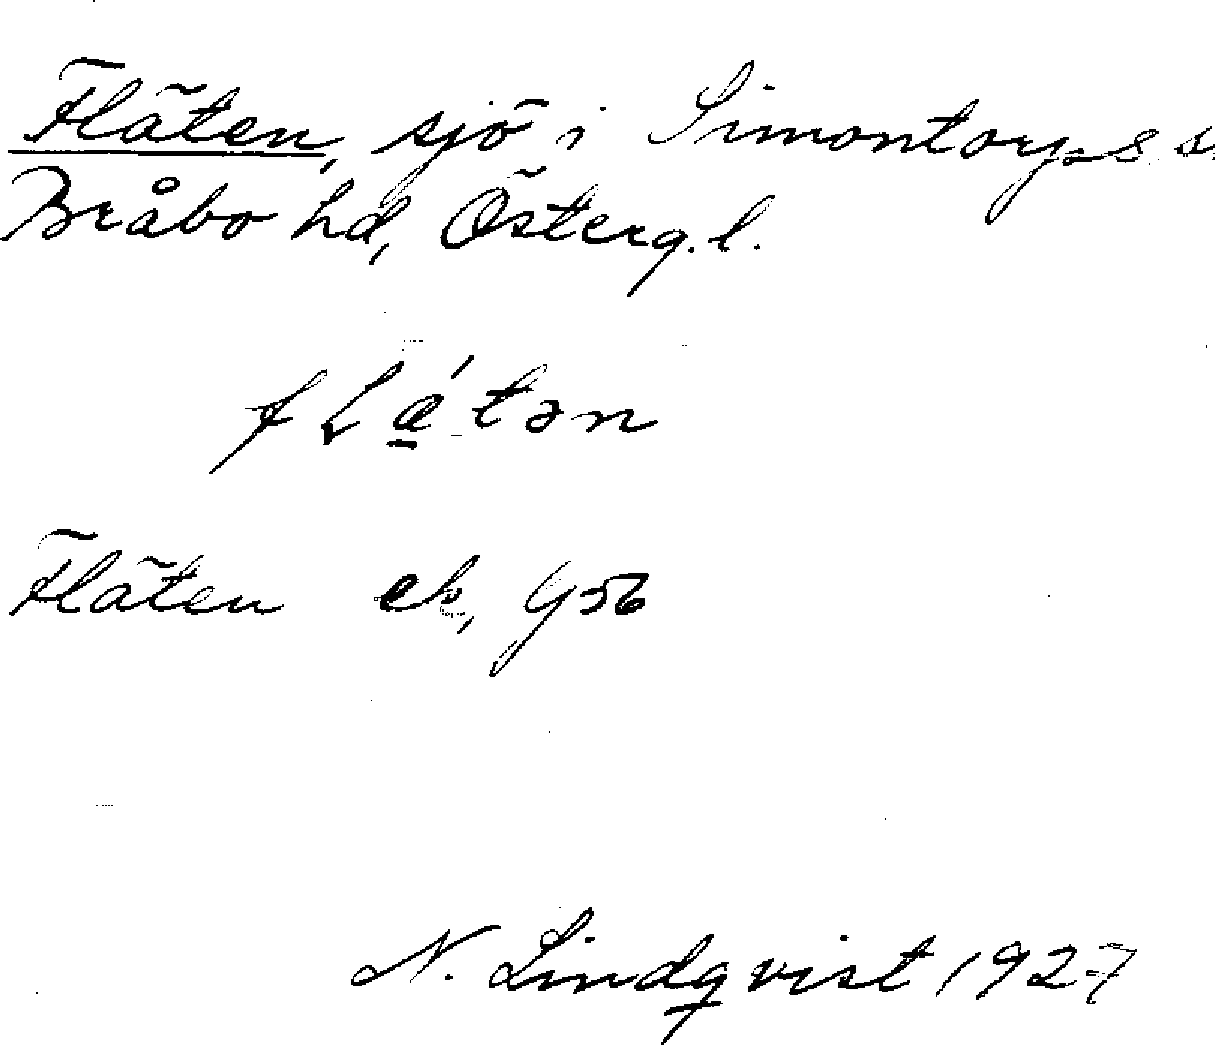 Fläten, sjö i Simontorps s.
Bråbo hd, Österg. l.
fLǽtən
Fläten ek,
N. Lindqvist 1927